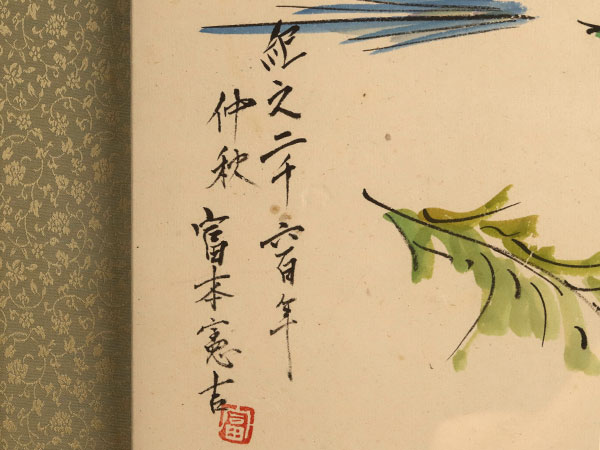 紀之二千六百年
仲秋 富本憲吉
富